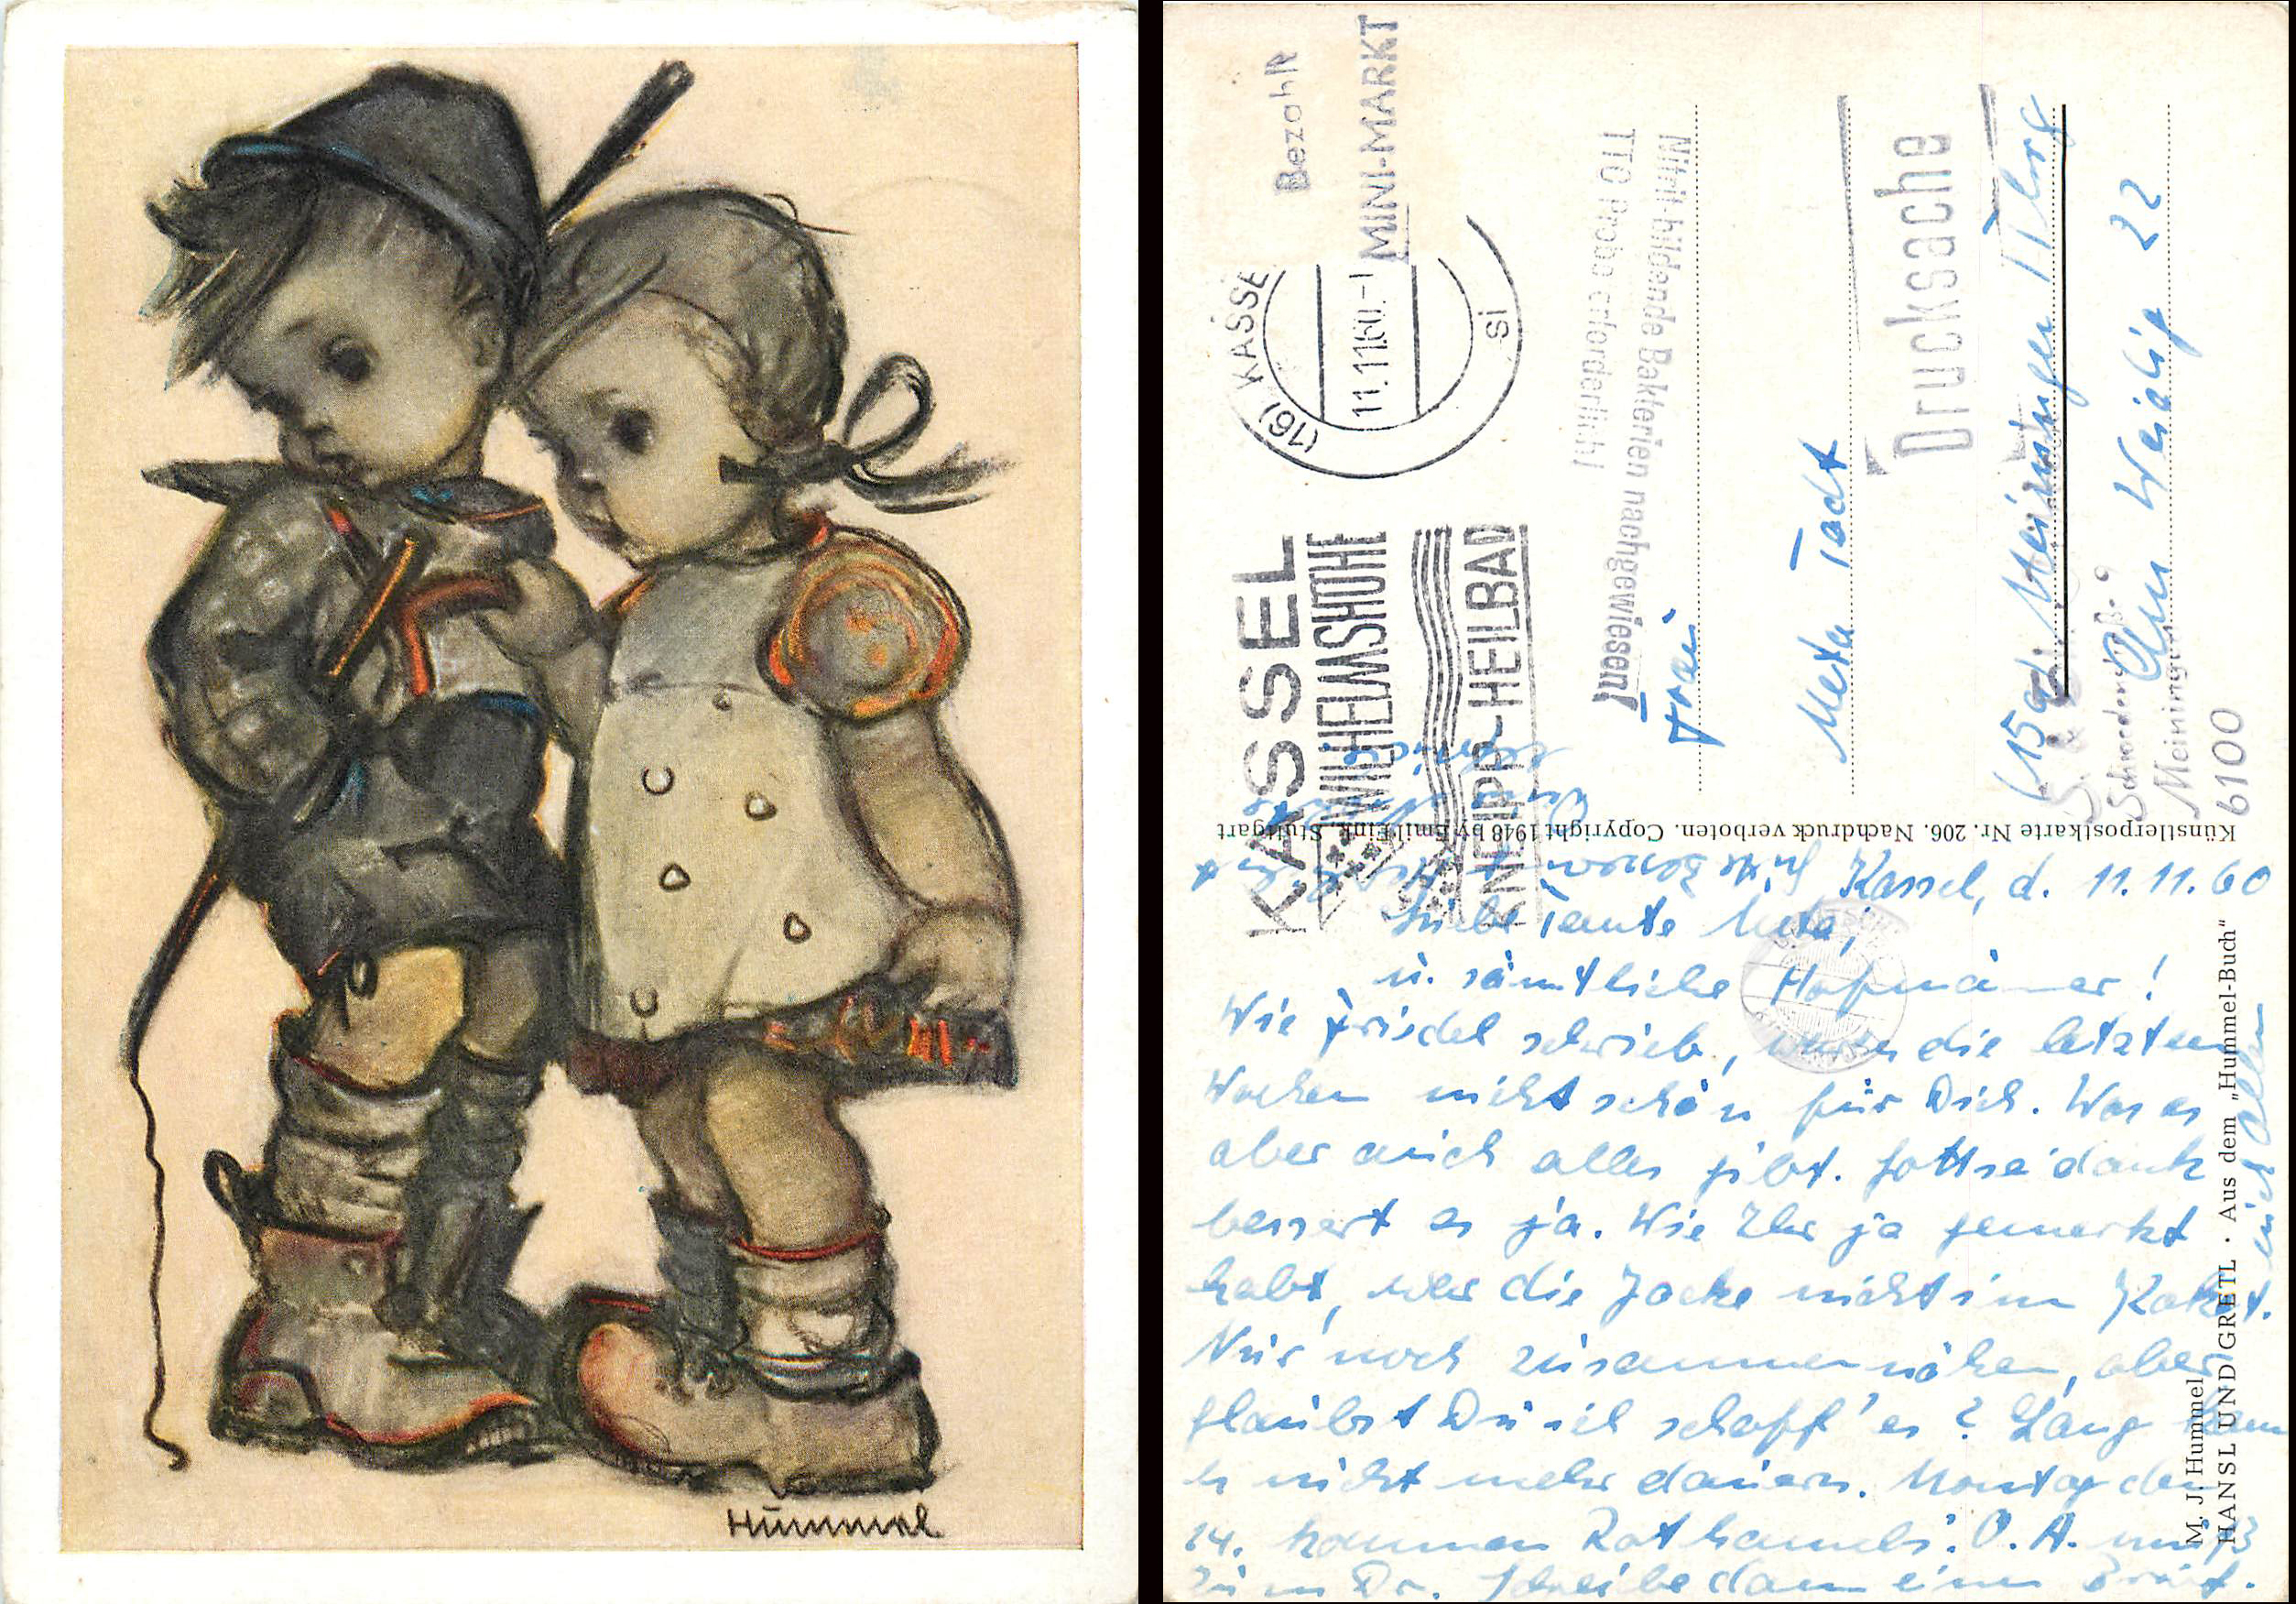 Hummel
Bezahlt
MINI-MARKT
(16) KASSE
11.11.60.-1
si
KASSEL
WILHELMSHÖHE
KNEIPP-HEILBAD
Nitritbildende Bakterien nachgewiesen!
TTC Probe erforderlich!
Drucksache
Frau
Meta Todt
(15a) Meiningen Thrg
Am Weidig 22
Schroederstraße 9
Meiningen
6100
Künstlerpostkarte Nr. 206. Nachdruck verboten. Copyright 1948 by Emil Fink, Stuttgart
M. J. Hummel
HANSL UND GRETL · Aus dem „Hummel-Buch“
Kassel, d. 11.11.60
Liebe Tante Meta,
u. sämtliche
Wie Friedel schrieb, waren die letzten
Wochen nicht schön für Dich. Was es
aber auch alles gibt. Gottseidank
bessert es ja. Wie Ihr ja gemerkt
habt, war die Jacke nicht im Paket.
Nur noch zusammennähen, aber
glaubst Du ich schaff' es? Lang kann
es nicht mehr dauern. Montag den
14. kommen O. A. muß
zum Dr. Schreibe dann einen Brief.